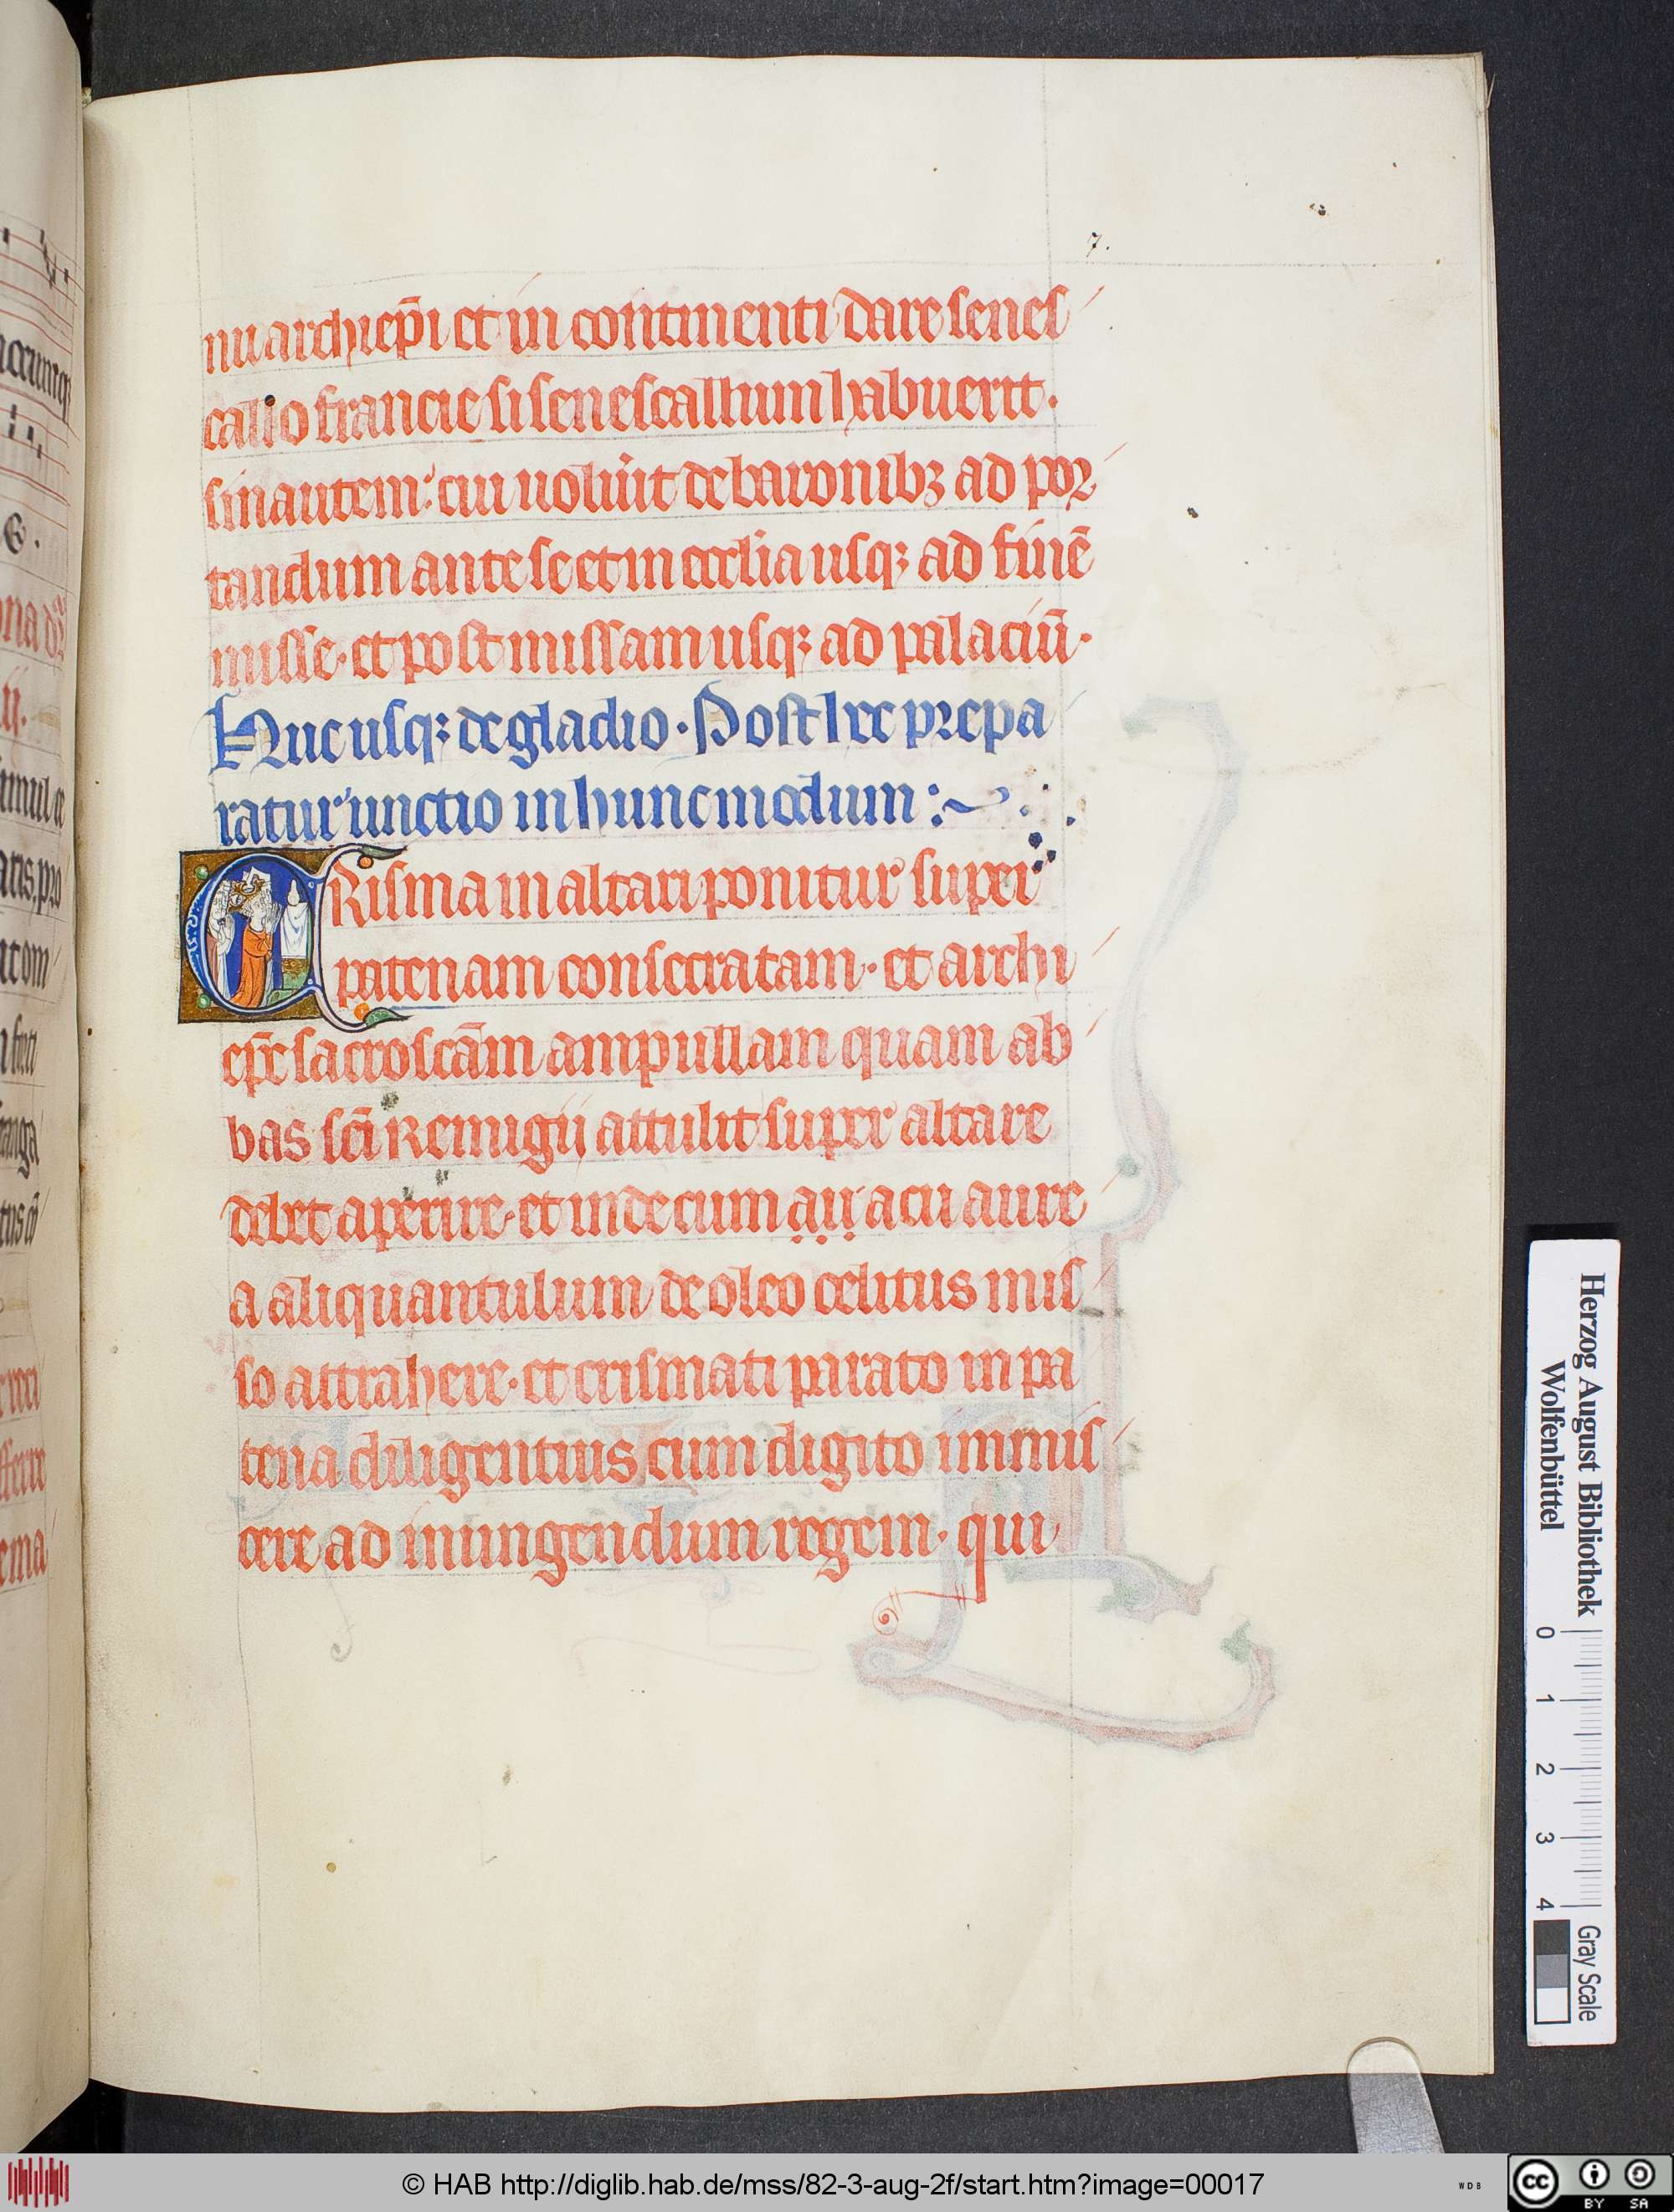 7.
nu archiep̄i et in continenti dare senes
callo francie si senescallum habuerit.
sin autem: cui uoluĩt de baronibꝫ ad por
tandum ante se et in ecclia usqꝫ ad finē
misse. et post missam usqꝫ ad palaciū.
Huc usqꝫ de gladio. Post hec prepa
ratur unctio in hunc modum:
CRisma in altari ponitur super
patenam consecratam. et archi
ep̄c sacroscām ampullam quam ab
bas sc̄i Remigii attulit super altare
debet aperire. et inde cum aıı acu aure
a aliquantulum de oleo celitus mis
so attrahere. et crismati parato in pa
tena diligentius cum digito immis
cere ad inungendum regem. qui
Herzog August Bibliothek
Wolfenbüttel
0 1 2 3 4
Gray Scale
© HAB http://diglib.hab.de/mss/82-3-aug-2f/start.htm?image=00017
WDB
cc BY SA